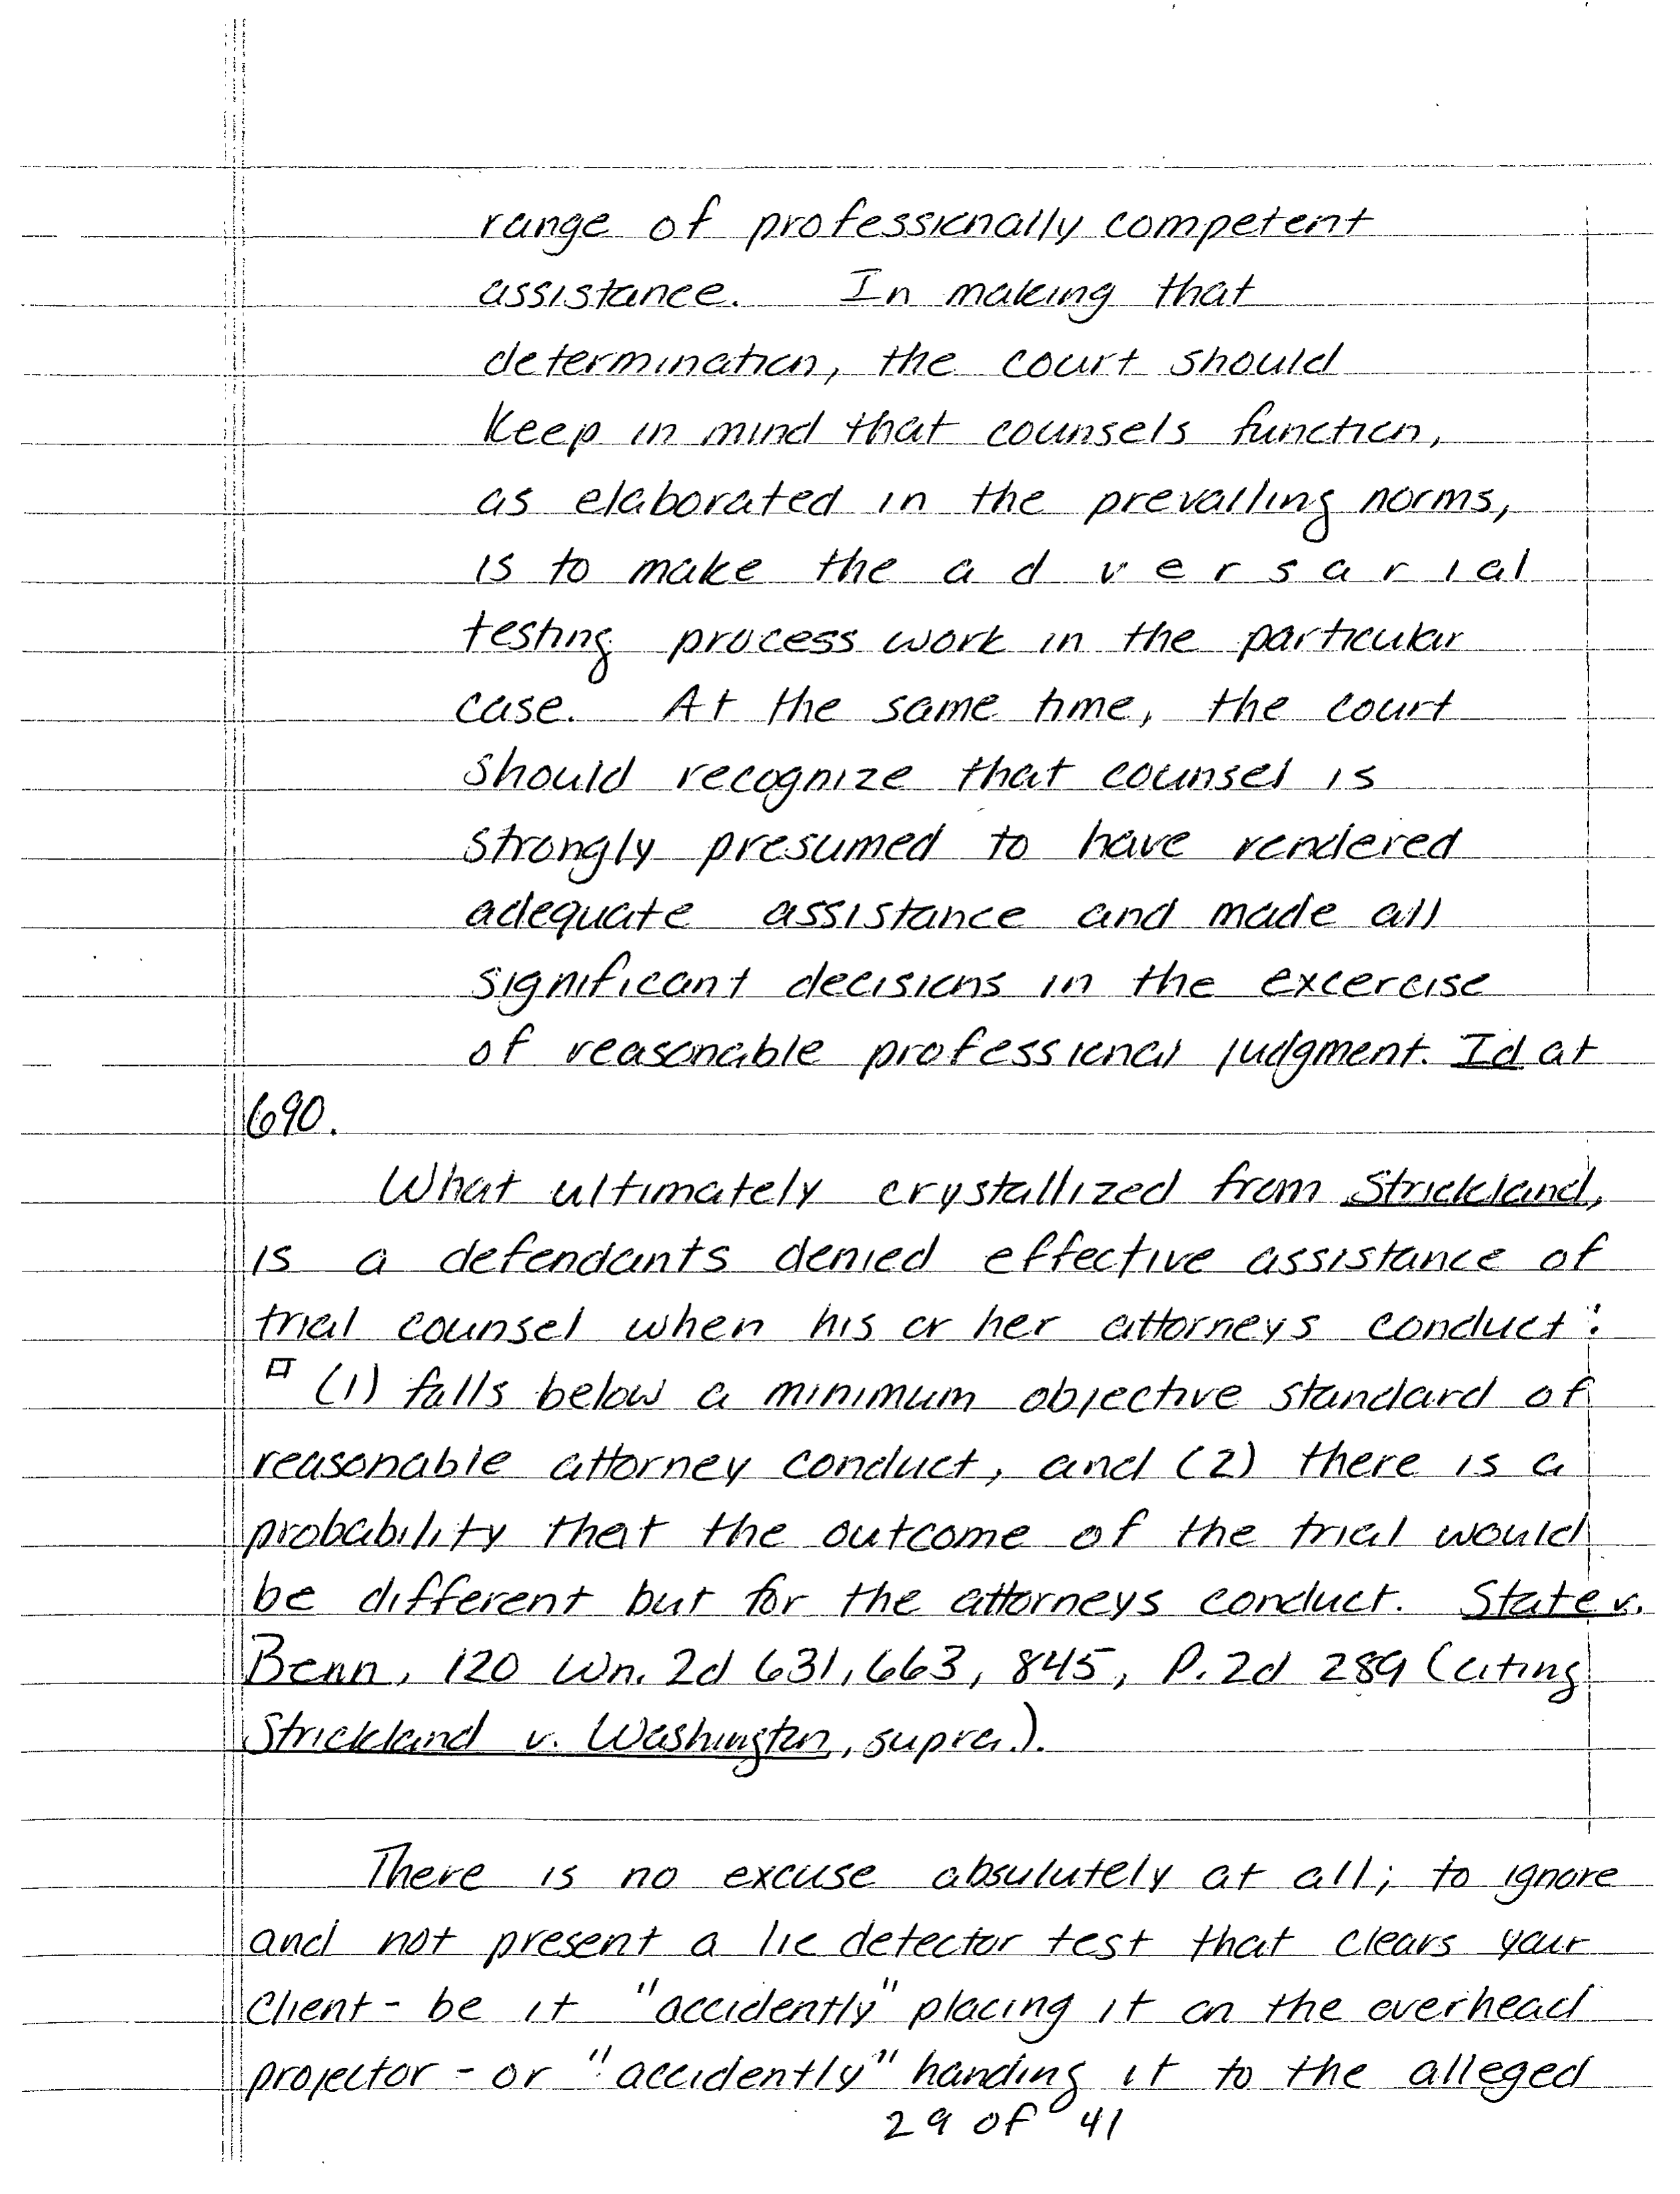 range of professionally competent
assistance. In making that
determination, the court should
keep in mind that counsels function,
as elaborated in the prevailing norms,
is to make the a d v e r s a r i a l
testing process work in the particular
case. At the same time, the court
should recognize that counsel is
strongly presumed to have rendered
adequate assistance and made all
significant decisions in the excercise
of reasonable professional judgment. Id at
690.
What ultimately crystallized from Strickland,
is a defendants denied effective assistance of
trial counsel when his or her attorneys conduct:
(1) falls below a minimum objective standard of
reasonable attorney conduct, and (2) there is a
probability that the outcome of the trial would
be different but for the attorneys conduct. State v.
Benn, 120 Wn. 2d 631, 663, 845, P. 2d 289 (citing
Strickland v. Washington, supra.).
There is no excuse absulutely at all; to ignore
and not present a lie detector test that clears your
client - be it "accidently" placing it on the overhead
projector - or "accidently" handing it to the alleged
29 of 41